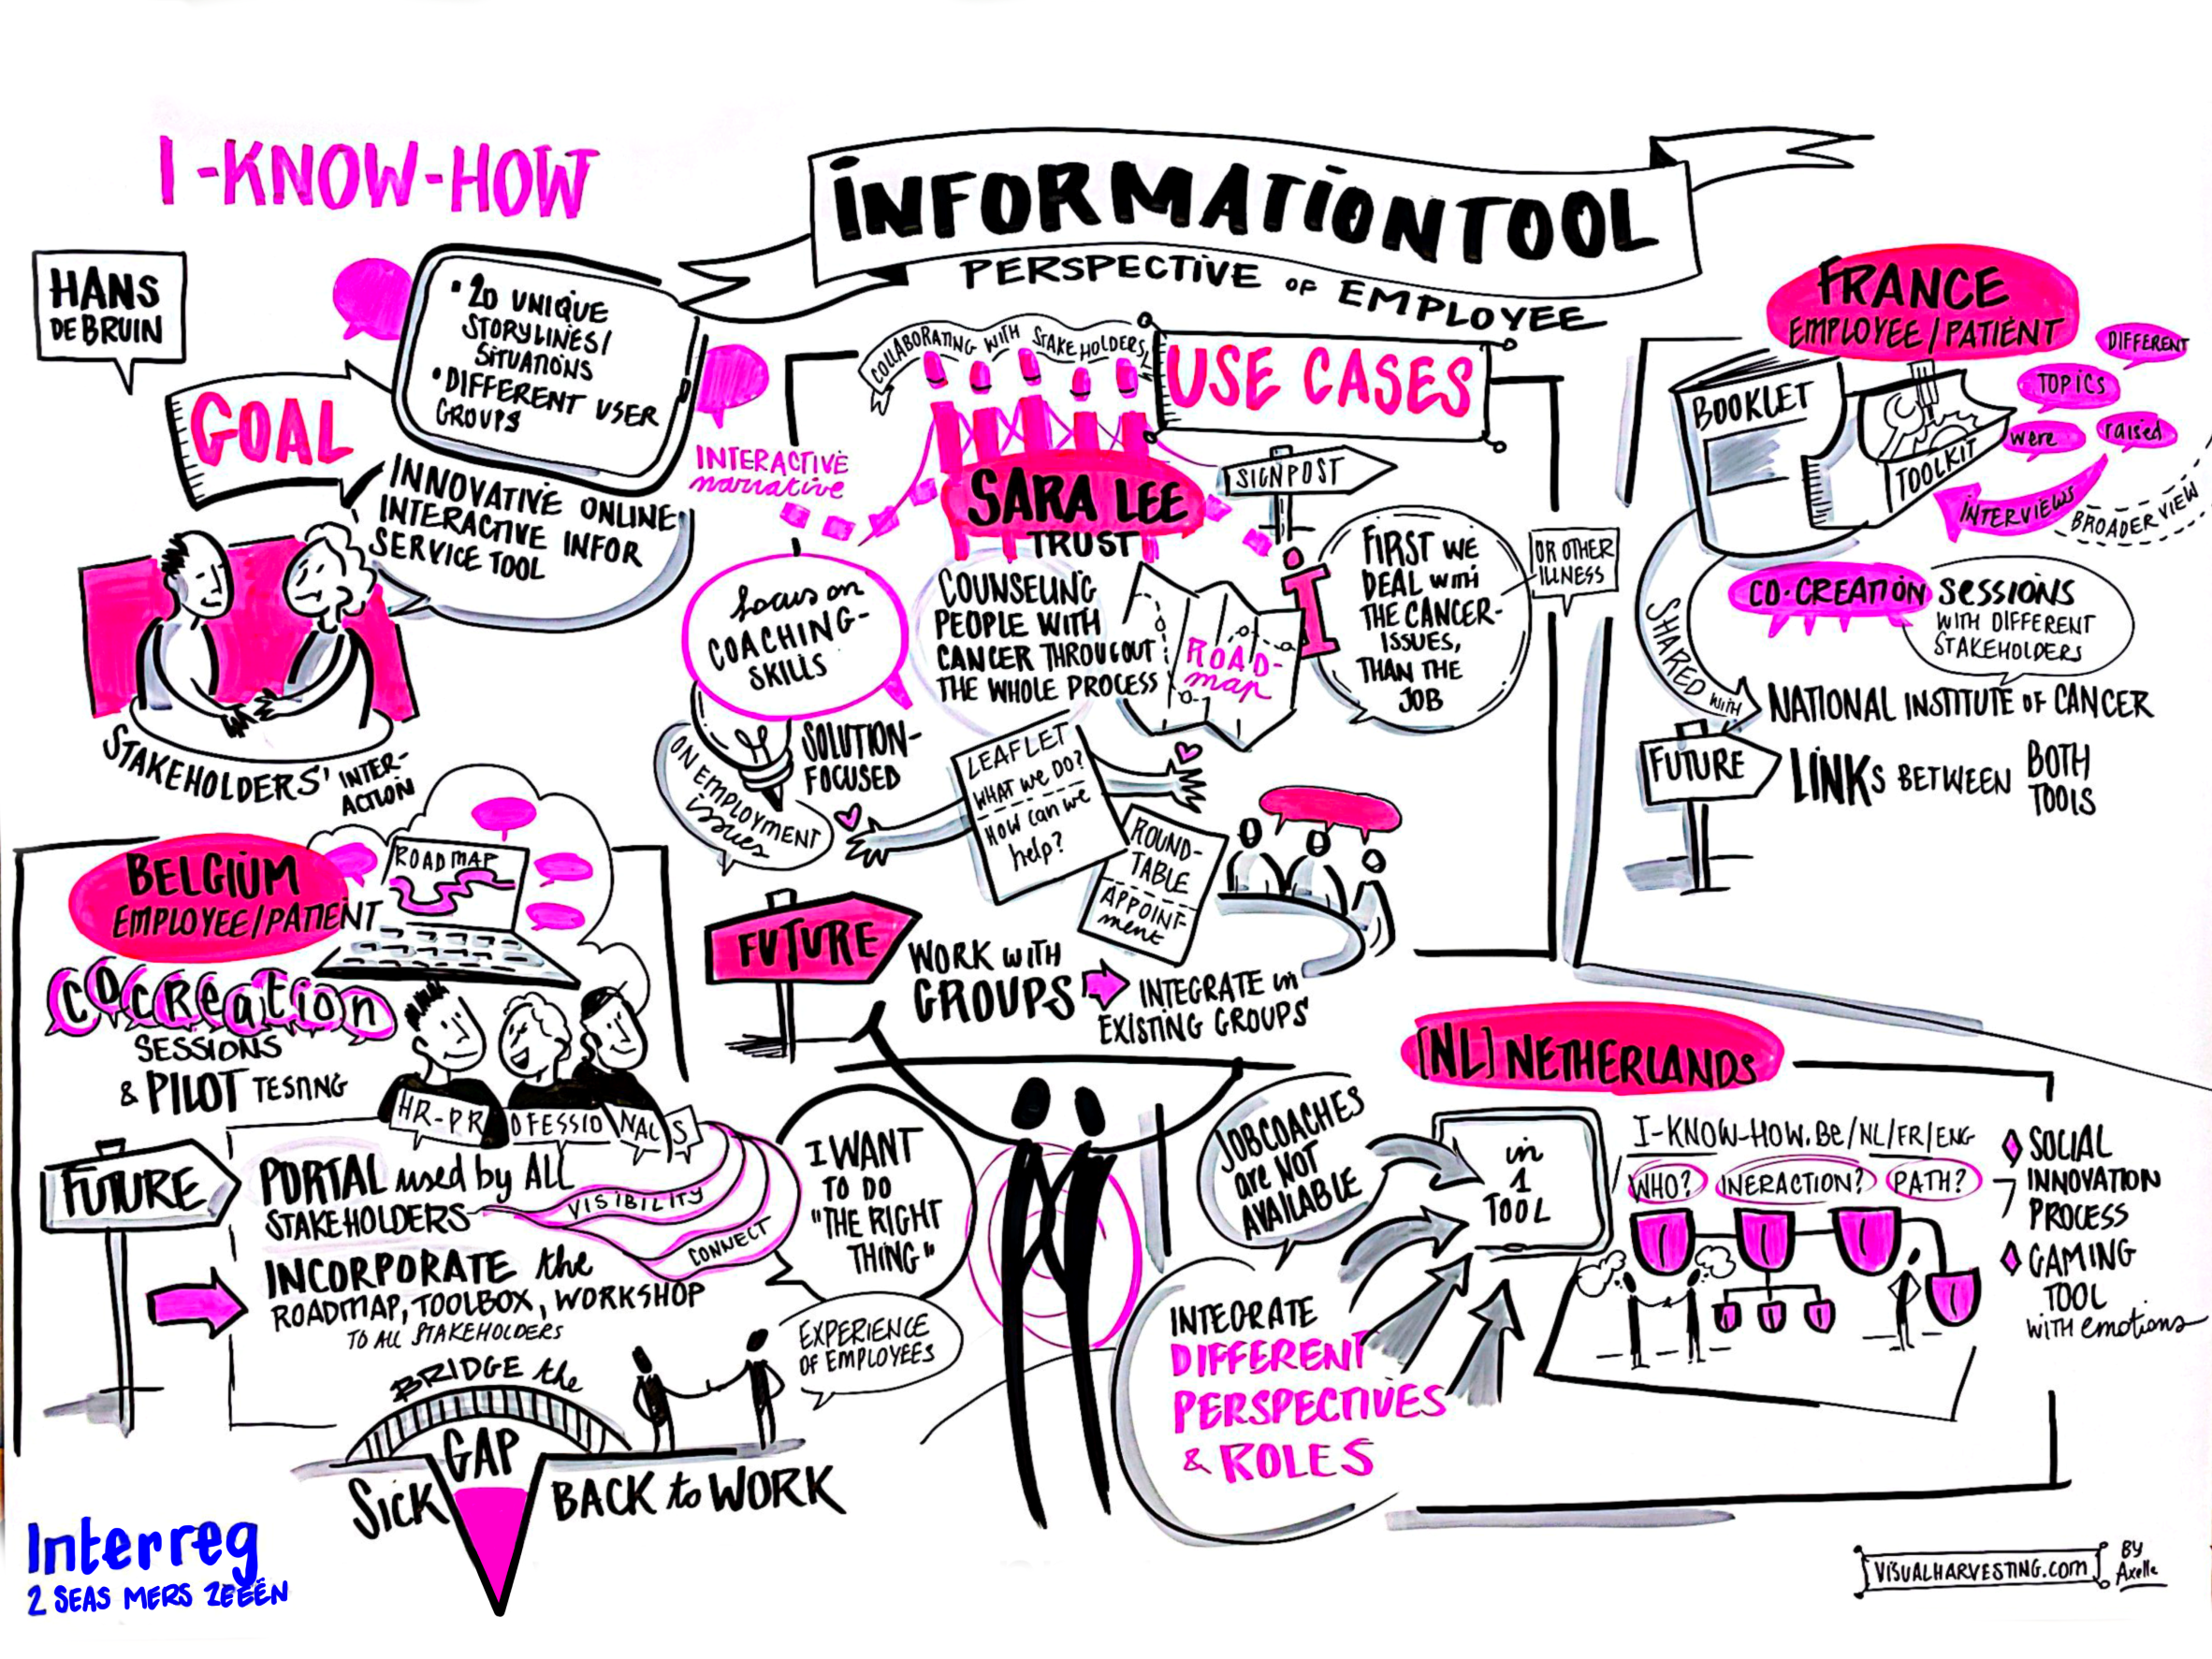 I-KNOW-HOW
INFORMATIONTOOL
PERSPECTIVE OF EMPLOYEE
HANS
DE BRUIN
GOAL
• 20 UNIQUE
STORYLINES/
SITUATIONS
• DIFFERENT USER
GROUPS
INNOVATIVE ONLINE
INTERACTIVE INFOR
SERVICE TOOL
INTERACTIVE
narrative
STAKEHOLDERS' INTER-
ACTION
COLLABORATING WITH STAKEHOLDERS
USE CASES
SARA LEE
TRUST
SIGNPOST
focus on
COACHING-
SKILLS
SOLUTION-
FOCUSED
ON EMPLOYMENT
issues
COUNSELING
PEOPLE WITH
CANCER THROUGOUT
THE WHOLE PROCESS
ROAD-
map
I
FIRST WE
DEAL WITH
THE CANCER-
ISSUES,
THAN THE
JOB
OR OTHER
ILLNESS
LEAFLET
WHAT WE DO?
HOW can we
help?
ROUND-
TABLE
APPOINT-
ment
FUTURE
WORK WITH
GROUPS
INTEGRATE in
EXISTING GROUPS
FRANCE
EMPLOYEE/PATIENT
BOOKLET
TOOLKIT
DIFFERENT
TOPICS
were
raised
INTERVIEWS
BROADER VIEW
CO-CREATION SESSIONS
WITH DIFFERENT
STAKEHOLDERS
SHARED WITH
NATIONAL INSTITUTE OF CANCER
FUTURE
LINKS BETWEEN BOTH
TOOLS
BELGIUM
EMPLOYEE/PATIENT
ROADMAP
COCREATION
SESSIONS
& PILOT TESTING
HR-PROFESSIONALS
FUTURE
PORTAL used by ALL
STAKEHOLDERS
VISIBILITY
CONNECT
INCORPORATE the
ROADMAP, TOOLBOX, WORKSHOP
TO ALL STAKEHOLDERS
I WANT
TO DO
"THE RIGHT
THING"
EXPERIENCE
OF EMPLOYEES
BRIDGE the
GAP
SICK
BACK to WORK
[NL] NETHERLANDS
JOBCOACHES
are NOT
AVAILABLE
in
1
TOOL
INTEGRATE
DIFFERENT
PERSPECTIVES
& ROLES
I-KNOW-HOW.Be/NL/FR/ENG
WHO? INERACTION? PATH?
SOCIAL
INNOVATION
PROCESS
GAMING
TOOL
WITH emotions
Interreg
2 SEAS MERS ZEEËN
VISUALHARVESTING.com
BY
Axelle